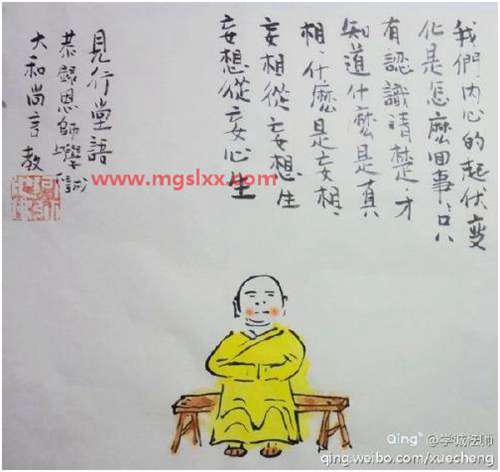 我們内心的起伏變
化是怎麼回事,只
有認識清楚,才
知道什麼是真
相,什麼是妄相,
妄相從妄想生
妄想從妄心生
見行堂語
恭錄恩師學誠
大和尚言教
www.mgslxx.com
Qing @学诚法师
qing.weibo.com/xuecheng